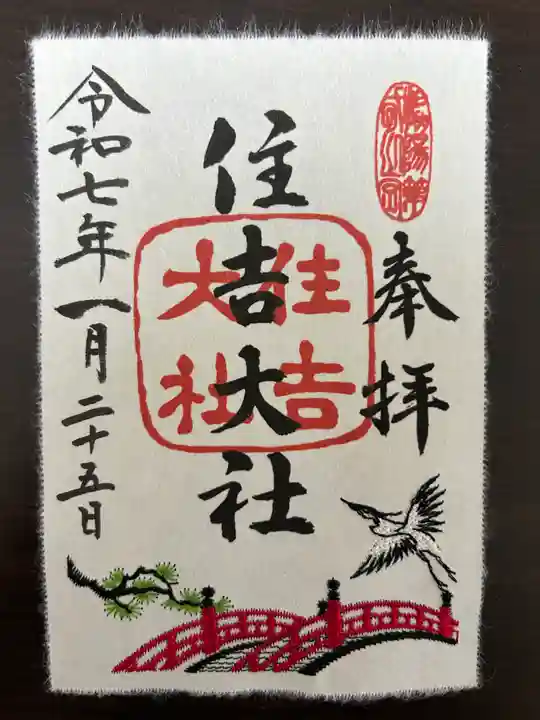 奉拝
住吉大社
住吉
大社
令和七年一月二十五日